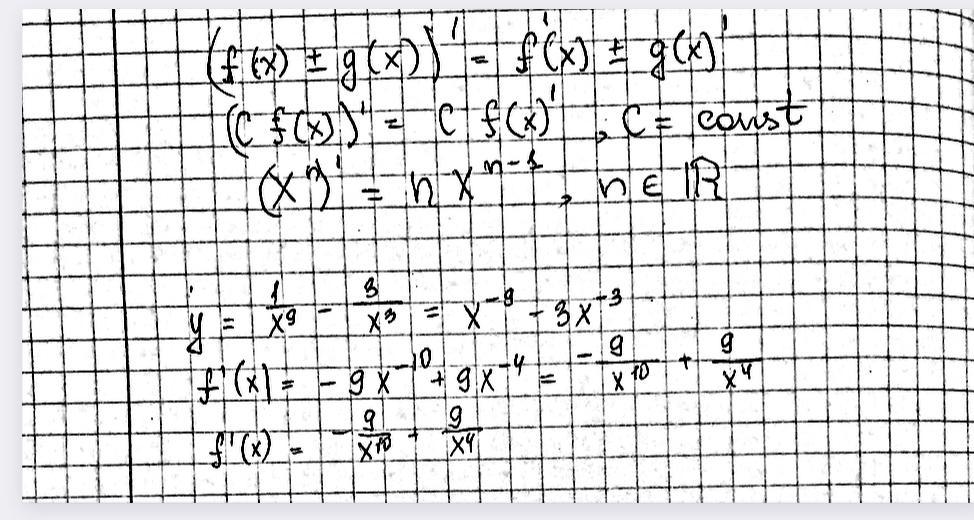 (f(x) ± g(x))' = f'(x) ± g(x)'
(C f(x))' = C f(x)' , C = const
(x^n)' = n x^{n-1} , n ∈ ℝ
y = 1/x^9 - 3/x^3 = x^{-9} - 3x^{-3}
f'(x) = -9x^{-10} + 9x^{-4} = -9/x^{10} + 9/x^4
f'(x) = -9/x^{10} + 9/x^4